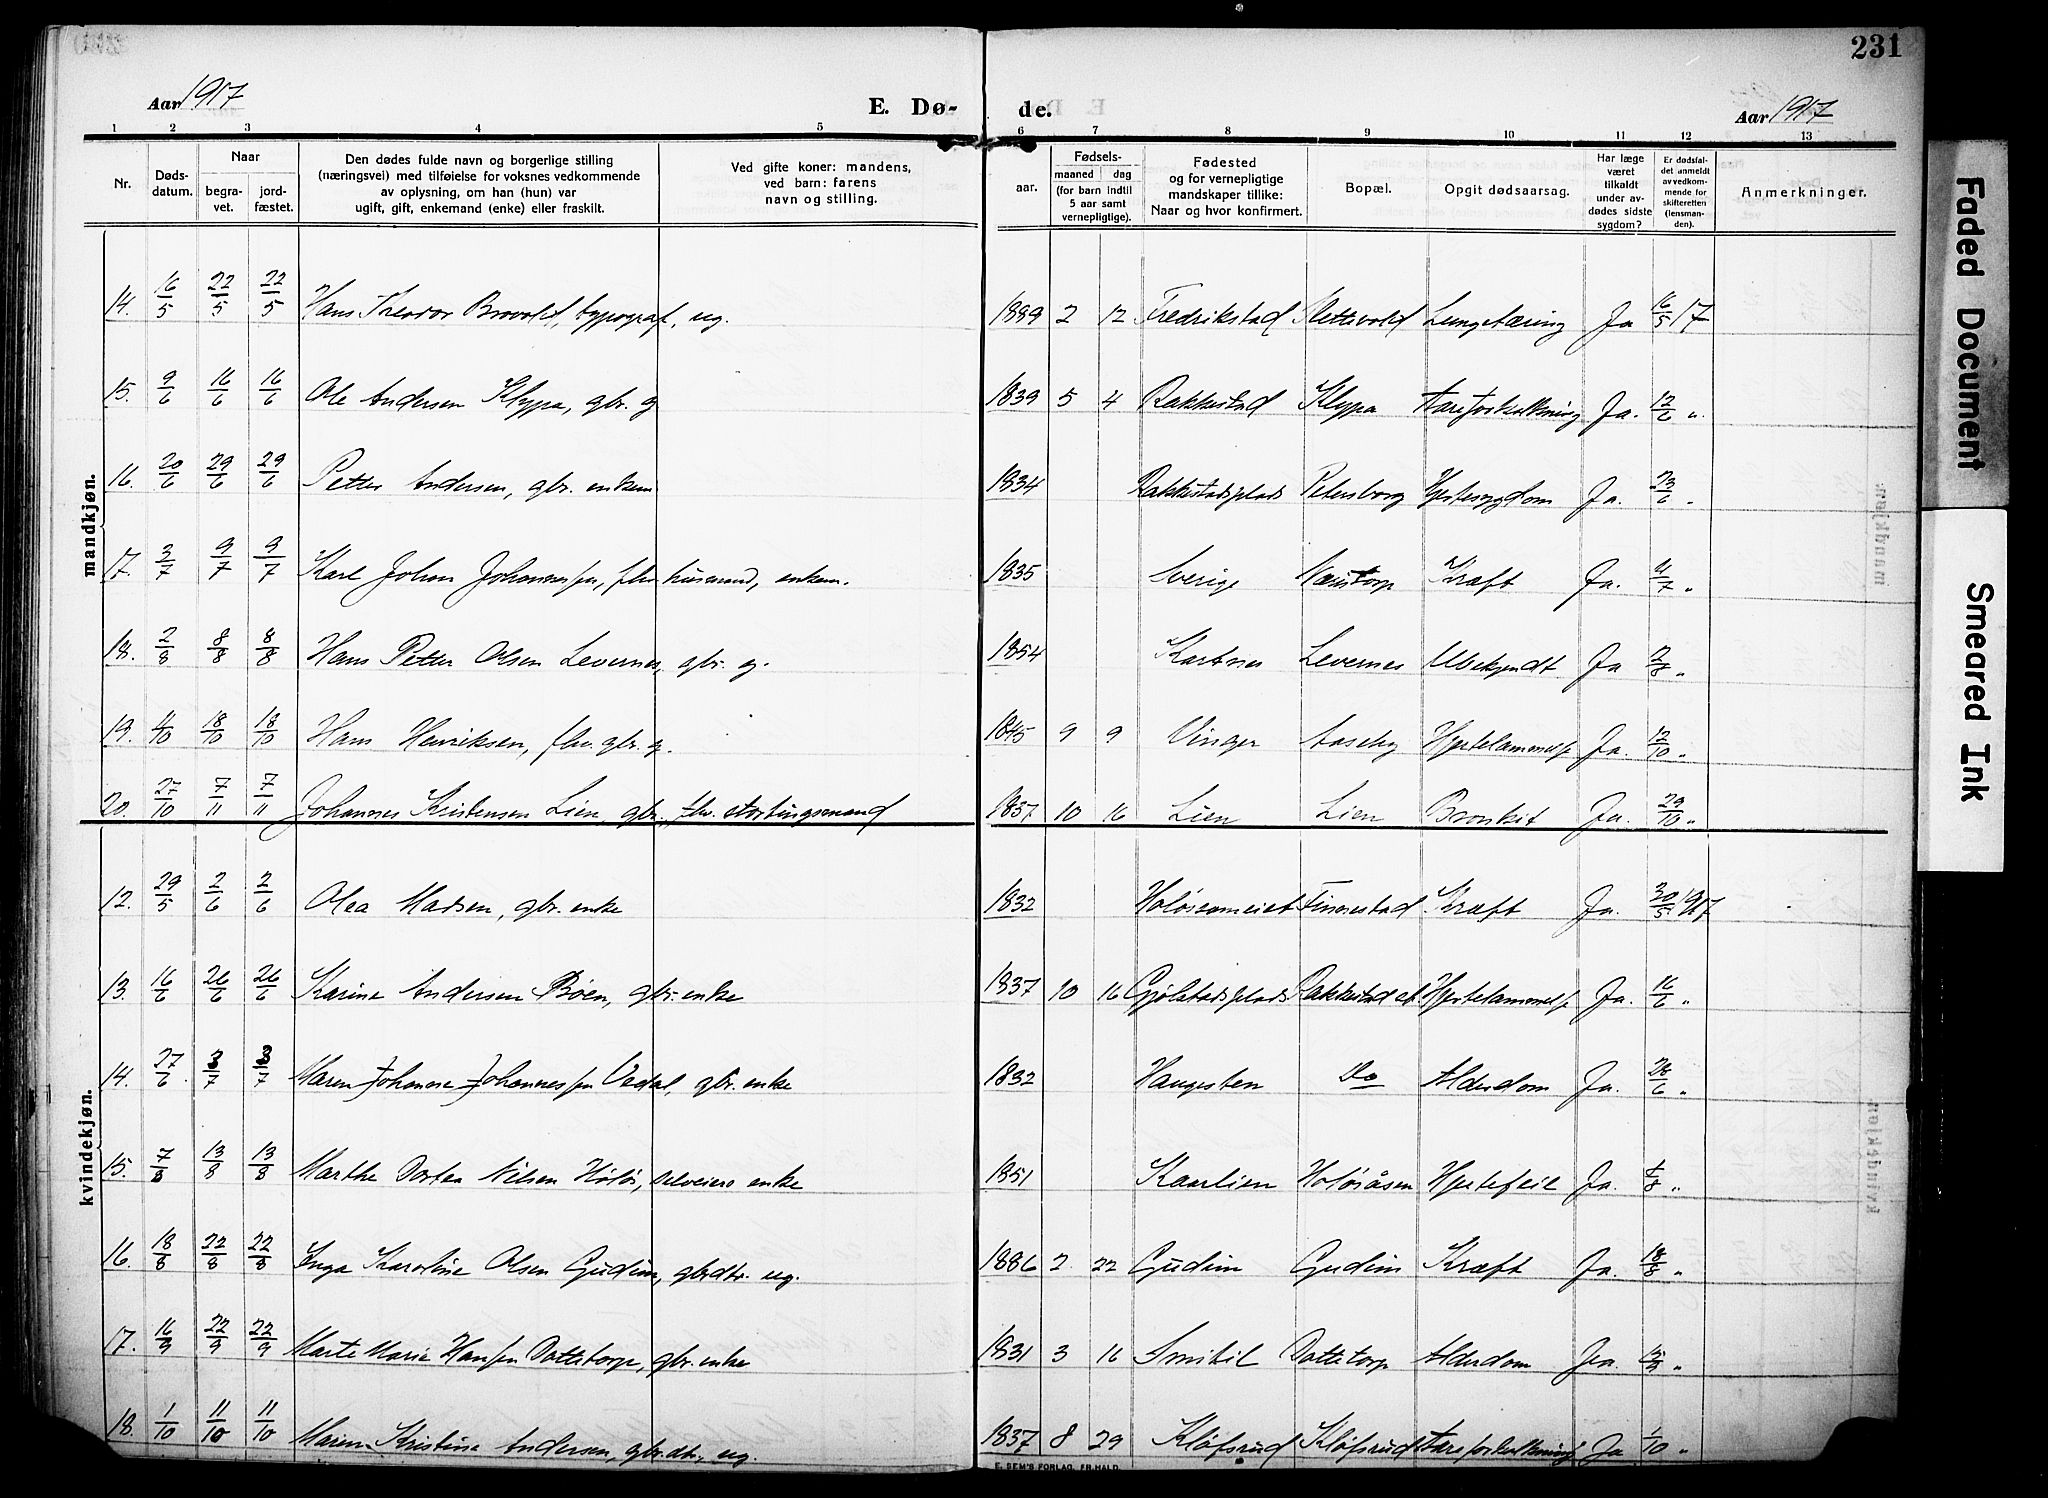 231
Aar 1917 E. Dø- de. Aar 1917
1 2 3 4 5 6 7 8 9 10 11 12 13
Nr. Døds-datum. Naar begra-vet. jord-fæstet. Den dødes fulde navn og borgerlige stilling (næringsvei) med tilføielse for voksnes vedkommende av oplysning, om han (hun) var ugift, gift, enkemand (enke) eller fraskilt. Ved gifte koner: mandens, ved barn: farens navn og stilling. Fødsels- aar. maaned dag (for barn indtil 5 aar samt vernepligtige). Fødested og for vernepligtige mandskaper tillike: Naar og hvor konfirmert. Bopæl. Opgit dødsaarsag. Har læge været tilkaldt under av-dødes sidste sygdom? Er dødsfal-det anmeldt av vedkom-mende for skifteretten (lensman-den). Anmerkninger.
mandkjøn.
14. 16/5 22/5 22/5 Hans Theodor Brovold, typograf, ug. 1889 2 12 Fredrikstad Slettevold Lungetæring Ja 16/5 17
15. 9/6 16/6 16/6 Ole Andersen Klypa, gbr. g 1839 5 4 Rakkestad Klypa Aareforkalkning Ja. 12/6 "
16. 20/6 29/6 29/6 Petter Andersen, gbr. enkem 1834 Rakkestadsplads Petersborg Hjertesygdom Ja. 23/6 "
17. 3/7 9/7 9/7 Karl Johan Johannessen, fhv. husmand, enkem. 1835 Sverige Næstorp Kræft Ja. 4/7 "
18. 2/8 8/8 8/8 Hans Petter Olsen Levernes, gbr. g. 1854 Kartnes Levernes Ubekjendt Ja 2/8 "
19. 11/10 18/10 18/10 Hans Henriksen, fhv. gbr. g. 1845 9 9 Vinger Aaseby Hjertelammelse Ja. 12/10 "
20. 27/10 7/11 7/11 Johannes Kristensen Lien, gbr., fhv. stortingsmand 1837 10 16 Lien Lien Bronkit Ja. 29/10 "
kvindekjøn.
12. 29/5 2/6 2/6 Olea Madsen, gbr. enke 1832 Holøsomeiet Finnestad Kræft Ja. 30/5 1917
13. 16/6 26/6 26/6 Karine Andersen Bøen, gbr. enke 1837 10 16 Gjølstadsplads Rakkestad Hjertelammelse Ja. 16/6 "
14. 27/6 Maren Johanne Johannessen Vedal, gbr. enke 1832 Haugesten Do Alderdom Ja. 28/6 "
15. 7/8 13/8 13/8 Marthe Dortea Nilsen Høløs, selveiers enke 1851 Kaarlien Holøsåsen Hjertefeil Ja. "
16. 18/8 22/8 22/8 Inga Karoline Olsen Gudim, gbrdtr. ug. 1886 2 22 Gudim Gudim Kræft Ja. 18/8 "
17. 16/9 22/9 22/9 Marte Marie Hansen Dattetorp, gbr. enke 1831 3 16 Smikil Dattetorp Alderdom Ja. "
18. 1/10 11/10 11/10 Maren Kristine Andersen, gbr. dtr., ug. 1837 8 29 Kløfsrud Kløfsrud Aareforkalkning Ja 1/10 "
E. SEM'S FORLAG, FR.HALD
Faded Document
Smeared Ink